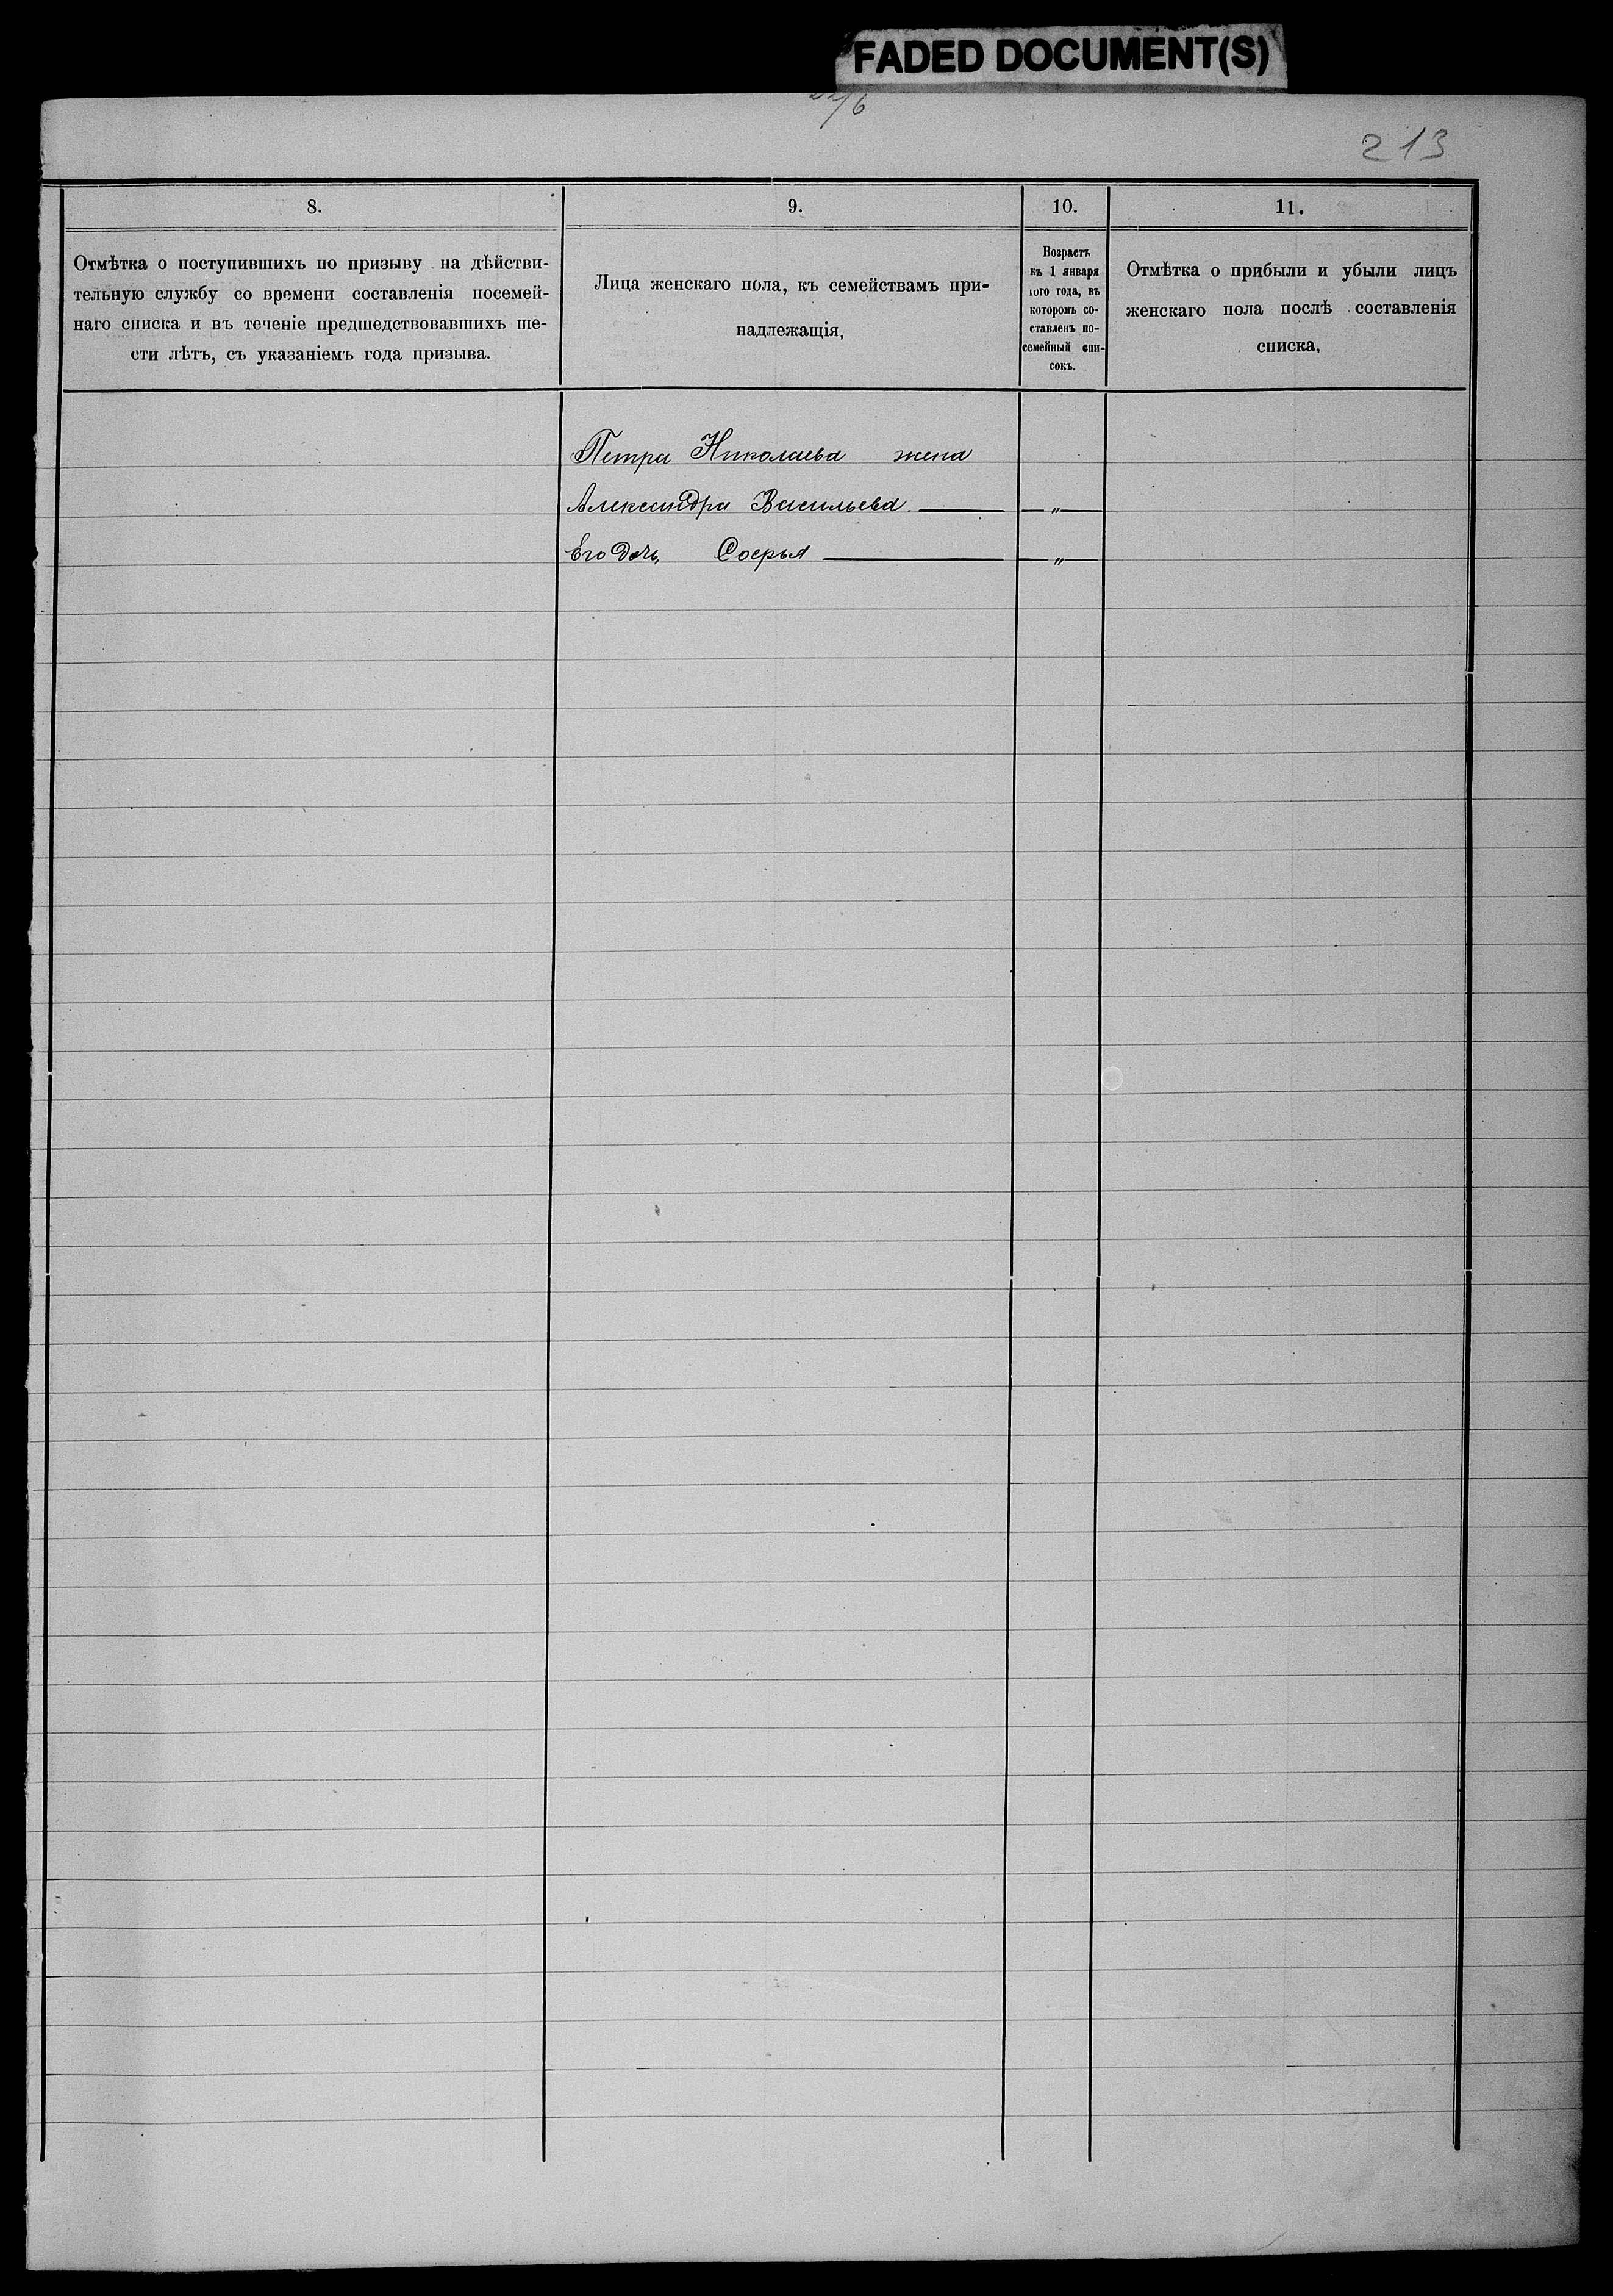 FADED DOCUMENT(S)
213
8.
Отмѣтка о поступившихъ по призыву на дѣйстви-
тельную службу со времени составленія посемей-
наго списка и въ теченіе предшедствовавшихъ ше-
сти лѣтъ, съ указаніемъ года призыва.
9.
Лица женскаго пола, къ семействамъ при-
надлежащія,
10.
Возрастъ
къ 1 января
того года, въ
которомъ со-
ставленъ по-
семейный спи-
сокъ.
11.
Отмѣтка о прибыли и убыли лицъ
женскаго пола послѣ составленія
списка,
Петра Николаева жена
Александра Васильева. — „ —
Его дочь, Софья — „ —